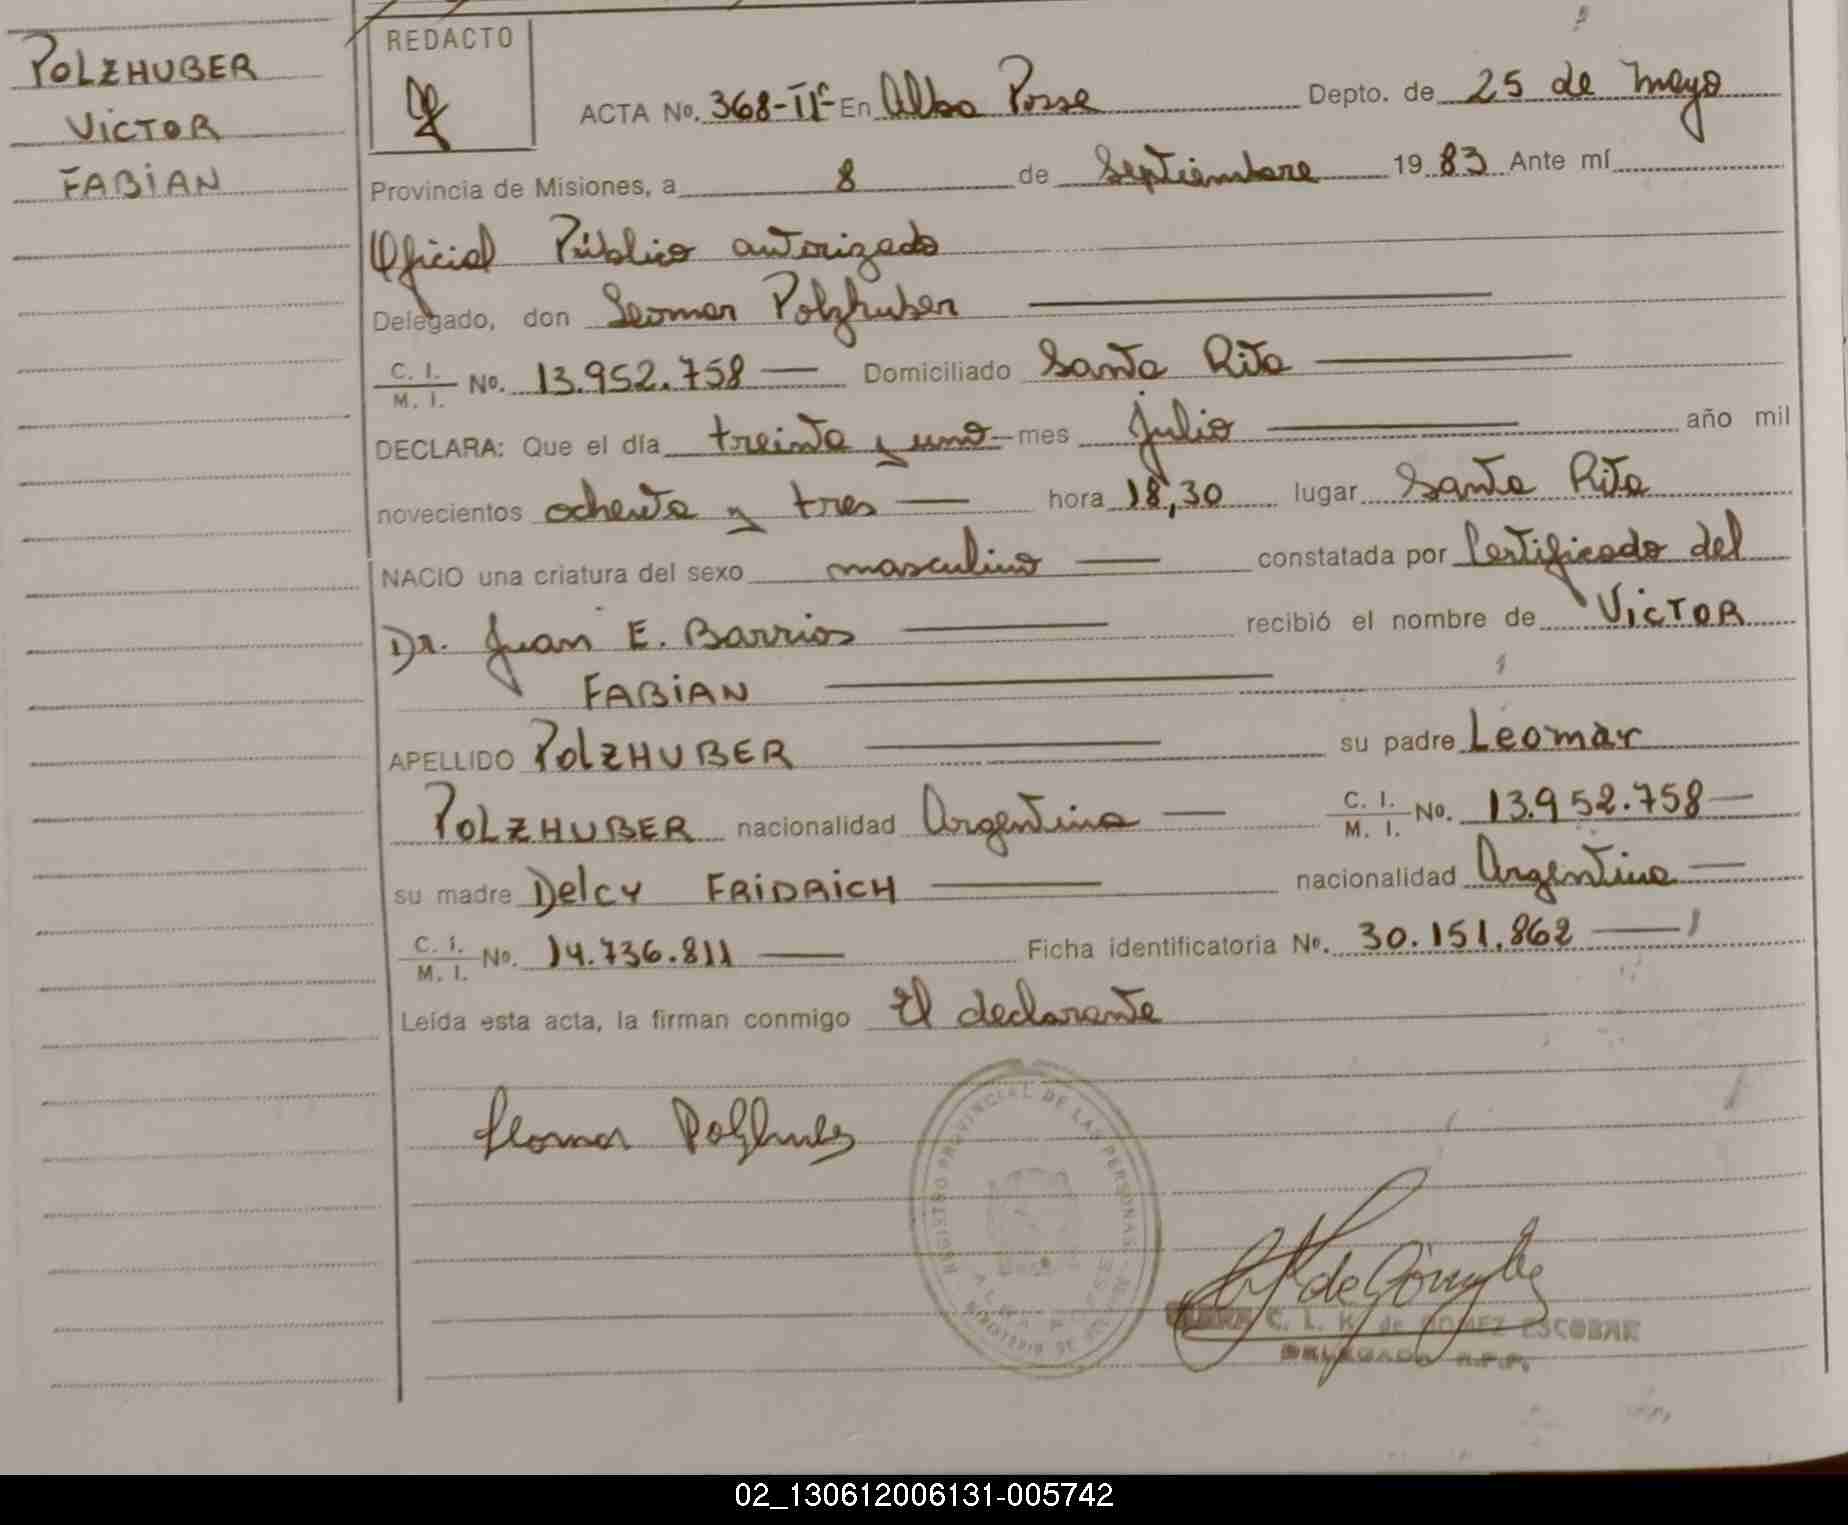 POLZHUBER
VICTOR
FABIAN
REDACTO
ACTA No. 368-IIº- En Alba Posse Depto. de 25 de Mayo
Provincia de Misiones, a 8 de Septiembre 1983 Ante mí
Oficial Público autorizado
Delegado, don Leomar Polzhuber
C. I. / M. I. No. 13.952.758 — Domiciliado Santa Rita
DECLARA: Que el día treinta y uno — mes Julio año mil
novecientos ochenta y tres — hora 18,30 lugar Santa Rita
NACIO una criatura del sexo masculino — constatada por Certificado del
Dr. Juan E. Barrios recibió el nombre de VICTOR
FABIAN
APELLIDO POLZHUBER su padre Leomar
POLZHUBER nacionalidad Argentina — C. I. / M. I. No. 13.952.758 —
su madre Delcy FRIDRICH nacionalidad Argentina —
C. I. / M. I. No. 14.736.811 — Ficha identificatoria No. 30.151.862 —
Leída esta acta, la firman conmigo El declarante
Leomar Polzhuber
REGISTRO PROVINCIAL DE LAS PERSONAS
ALBA POSSE
MINISTERIO DE
C. L. K. de GOMEZ ESCOBAR
DELEGADA R.P.P.
02_130612006131-005742